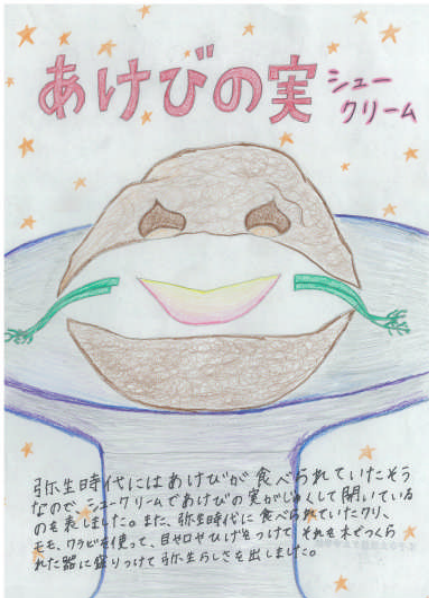 あけびの実
シュー
クリーム
弥生時代にはあけびが食べられていたそう
なので、シュークリームであけびの実がじゅくして開いている
のを表しました。また、弥生時代に食べられていたクリ、
モモ、ワラビを使って、目や口やひげをつけて、それを木でつくら
れた器に盛りつけて弥生らしさを出しました。